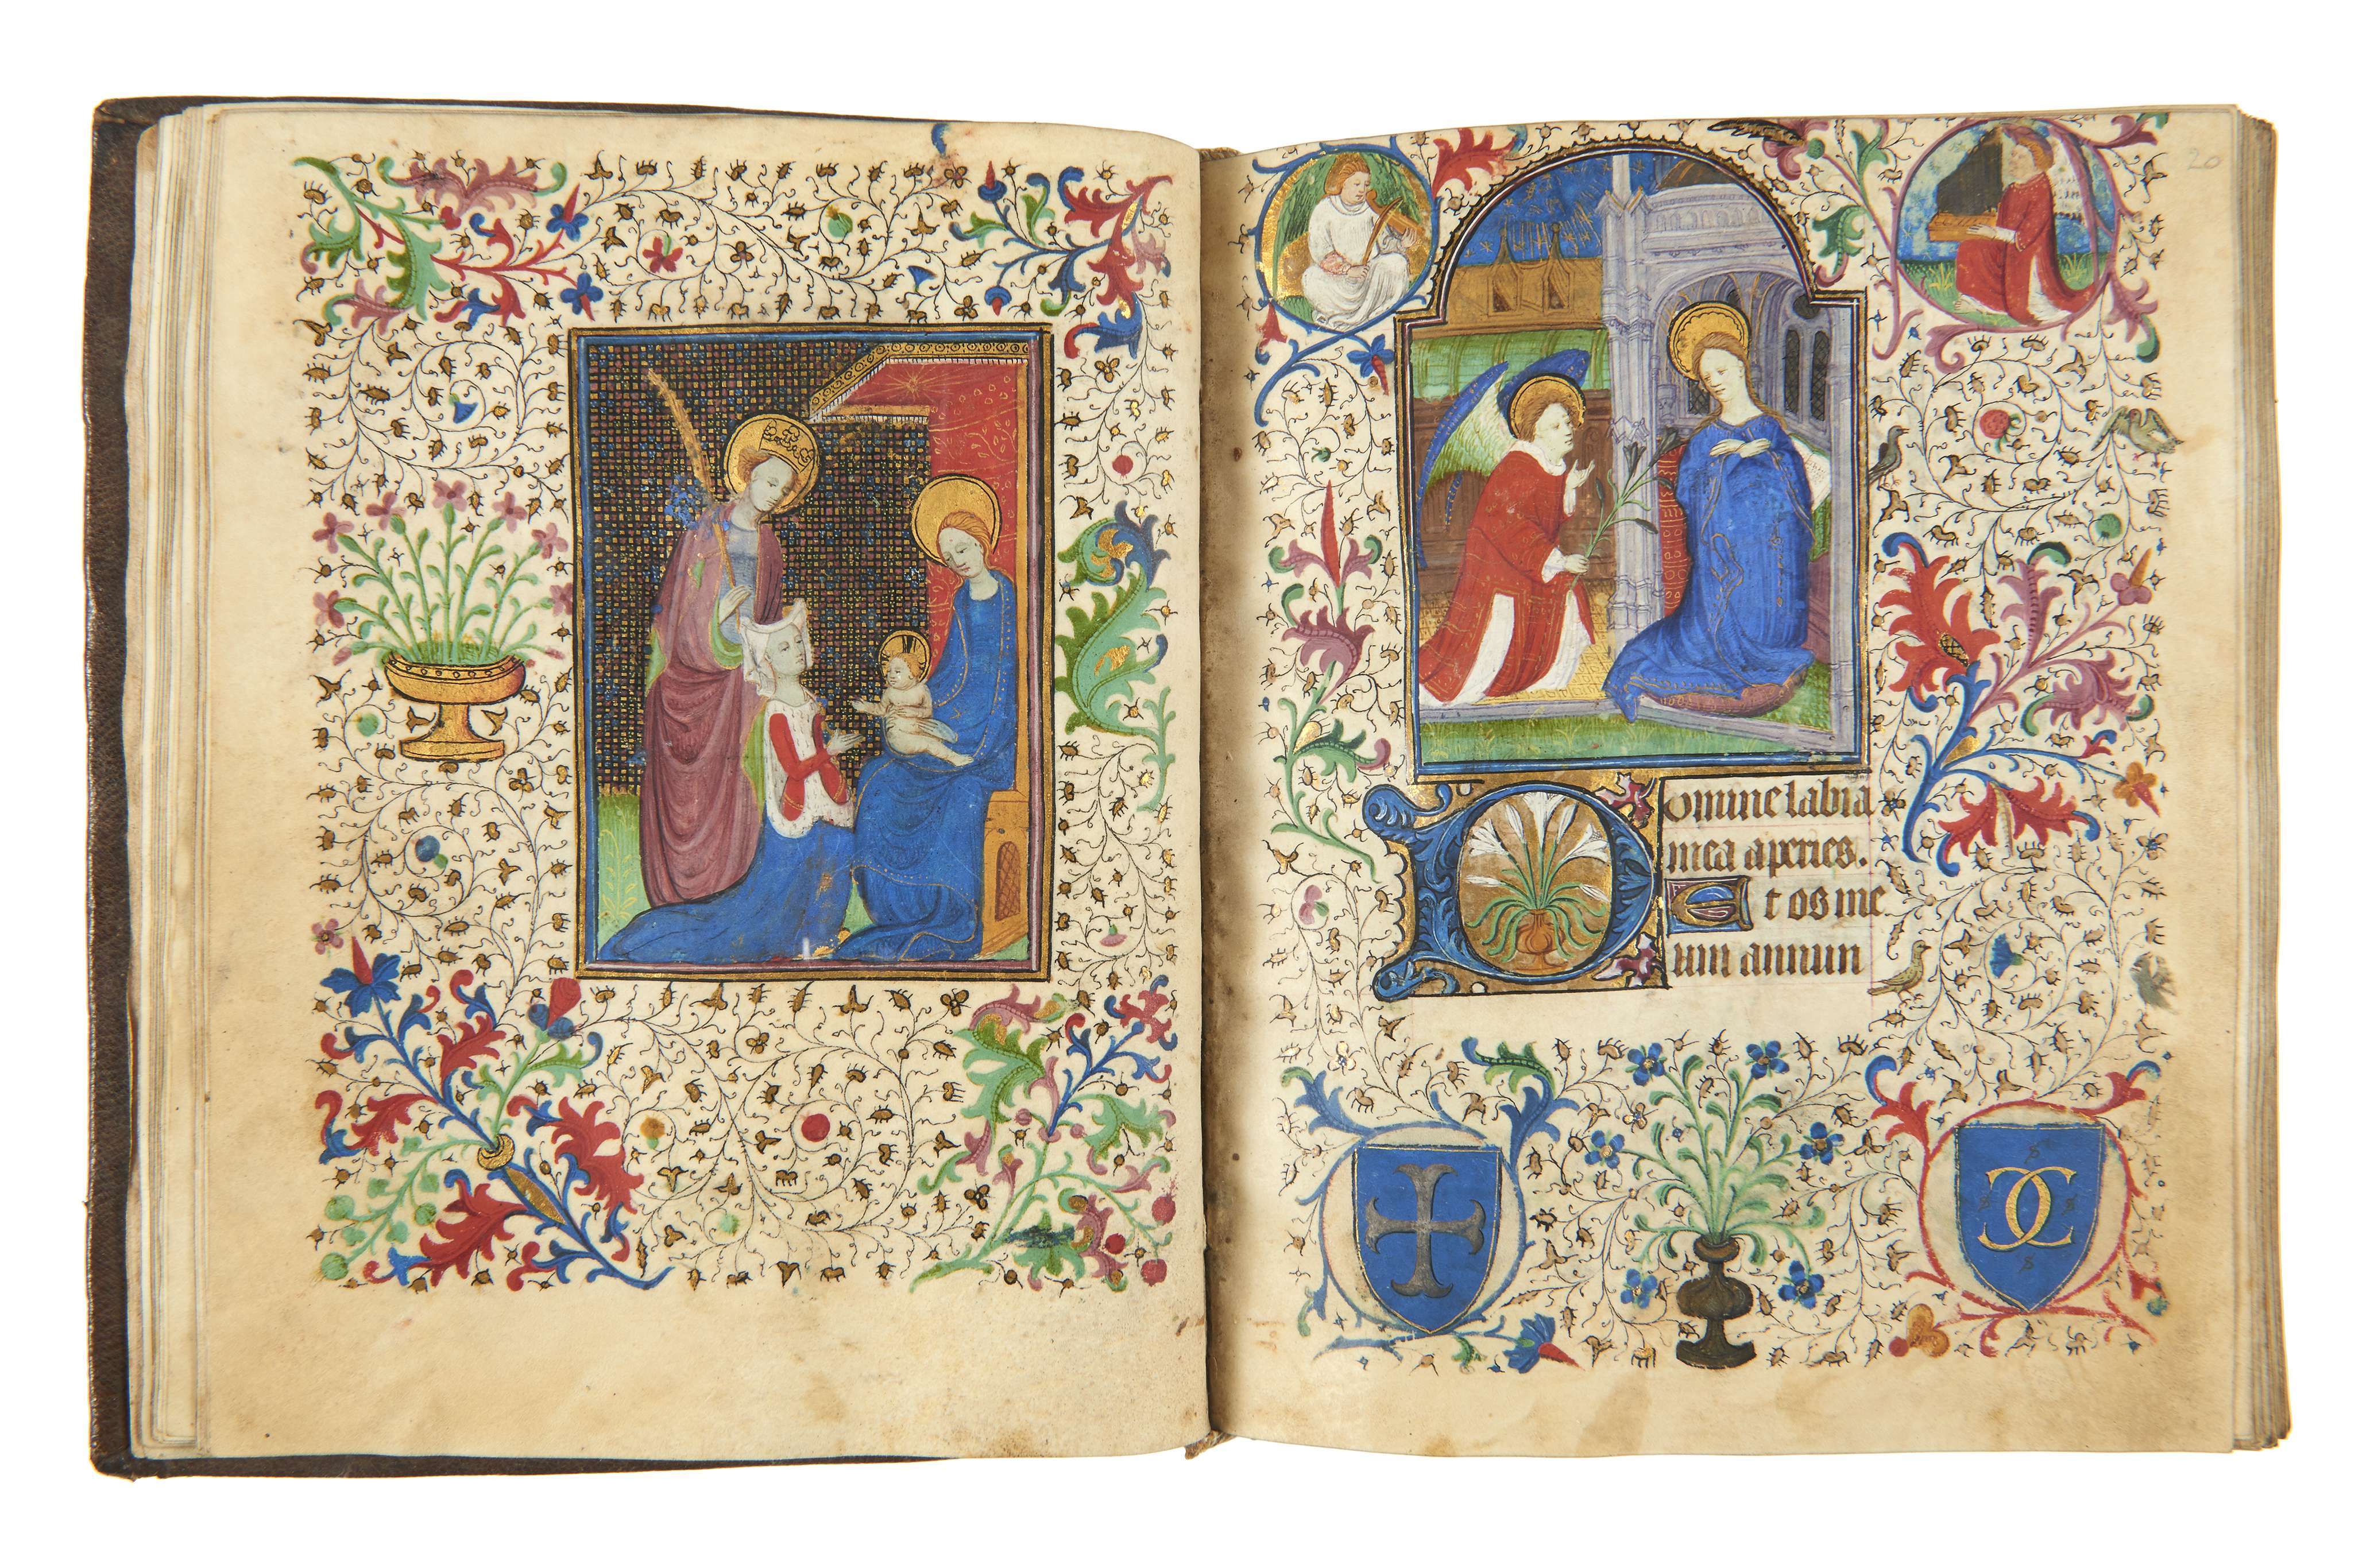 20
Domine labia
mea aperies.
Et os me
um annun